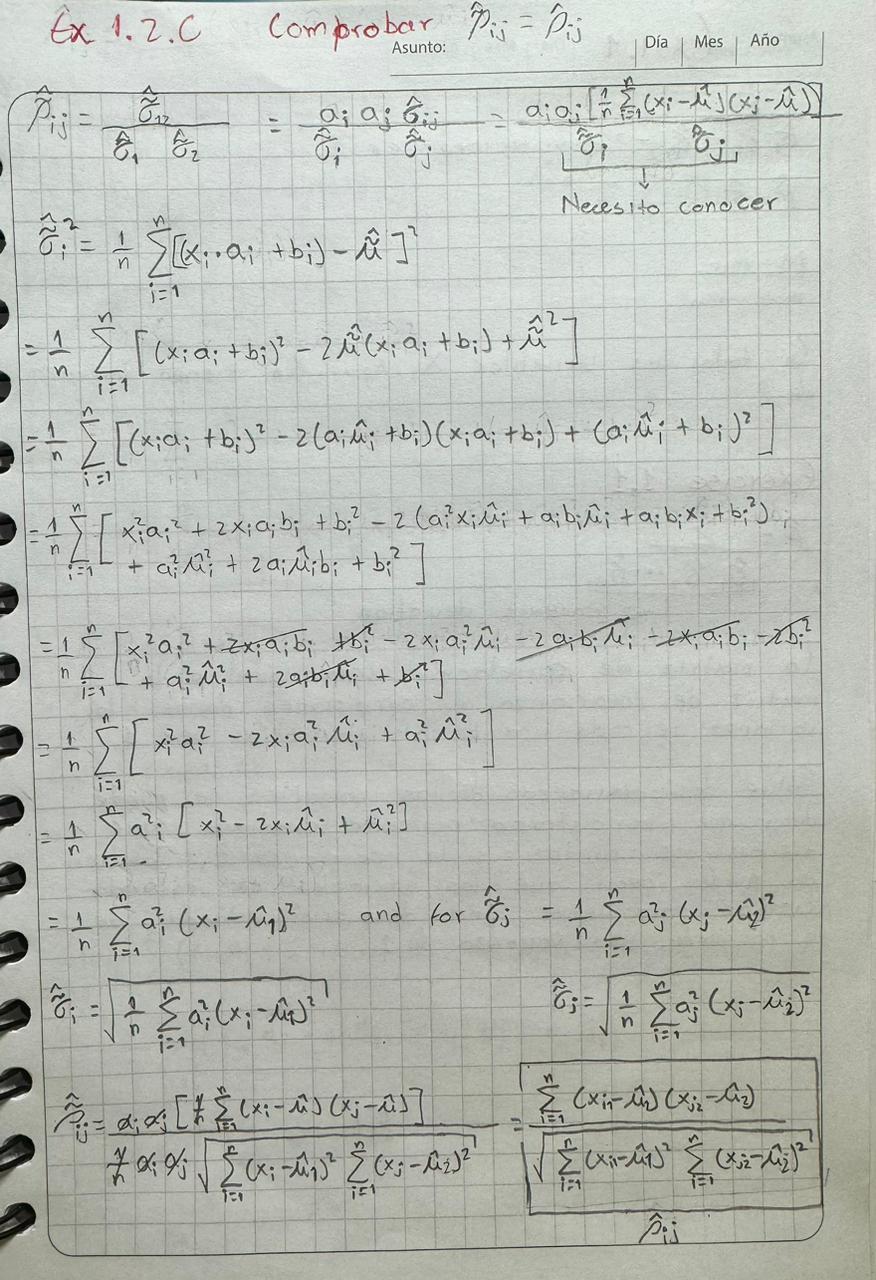 Ex 1.2.C Comprobar \hat{\tilde{ρ}}_{ij} = \hat{ρ}_{ij}
Asunto: Día Mes Año
\hat{\tilde{ρ}}_{ij} = \frac{\hat{\tilde{σ}}_{12}}{\hat{\tilde{σ}}_1 \hat{\tilde{σ}}_2} = \frac{a_i a_j \hat{σ}_{ij}}{\hat{\tilde{σ}}_i \hat{\tilde{σ}}_j} = \frac{a_i a_j [\frac{1}{n} \sum_{i=1}^{n} (x_i - \hat{μ})(x_j - \hat{μ})]}{\hat{\tilde{σ}}_i \hat{\tilde{σ}}_j}
Necesito conocer
\hat{\tilde{σ}}_i^2 = \frac{1}{n} \sum_{i=1}^{n} [(x_i · a_i + b_i) - \hat{\tilde{μ}}]^2
= \frac{1}{n} \sum_{i=1}^{n} [(x_i a_i + b_i)^2 - 2\hat{\tilde{μ}}(x_i a_i + b_i) + \hat{\tilde{μ}}^2]
= \frac{1}{n} \sum_{i=1}^{n} [(x_i a_i + b_i)^2 - 2(a_i \hat{μ}_i + b_i)(x_i a_i + b_i) + (a_i \hat{μ}_i + b_i)^2]
= \frac{1}{n} \sum_{i=1}^{n} [x_i^2 a_i^2 + 2x_i a_i b_i + b_i^2 - 2(a_i^2 x_i \hat{μ}_i + a_i b_i \hat{μ}_i + a_i b_i x_i + b_i^2)
+ a_i^2 \hat{μ}_i^2 + 2a_i \hat{μ}_i b_i + b_i^2]
= \frac{1}{n} \sum_{i=1}^{n} [x_i^2 a_i^2 + 2x_i a_i b_i + b_i^2 - 2x_i a_i^2 \hat{μ}_i - 2a_i b_i \hat{μ}_i - 2x_i a_i b_i - 2b_i^2
+ a_i^2 \hat{μ}_i^2 + 2a_i b_i \hat{μ}_i + b_i^2]
= \frac{1}{n} \sum_{i=1}^{n} [x_i^2 a_i^2 - 2x_i a_i^2 \hat{μ}_i + a_i^2 \hat{μ}_i^2]
= \frac{1}{n} \sum_{i=1}^{n} a_i^2 [x_i^2 - 2x_i \hat{μ}_i + \hat{μ}_i^2]
= \frac{1}{n} \sum_{i=1}^{n} a_i^2 (x_i - \hat{μ}_1)^2 and for \hat{\tilde{σ}}_j = \frac{1}{n} \sum_{i=1}^{n} a_j^2 (x_j - \hat{μ}_2)^2
\hat{\tilde{σ}}_i = \sqrt{\frac{1}{n} \sum_{i=1}^{n} a_i^2 (x_i - \hat{μ}_1)^2} \hat{\tilde{σ}}_j = \sqrt{\frac{1}{n} \sum_{i=1}^{n} a_j^2 (x_j - \hat{μ}_2)^2}
\hat{\tilde{ρ}}_{ij} = \frac{a_i a_j [\frac{1}{n} \sum_{i=1}^{n} (x_i - \hat{μ})(x_j - \hat{μ})]}{\frac{1}{n} a_i a_j \sqrt{\sum_{i=1}^{n} (x_i - \hat{μ}_1)^2 \sum_{i=1}^{n} (x_j - \hat{μ}_2)^2}} = \frac{\sum_{i=1}^{n} (x_{i1} - \hat{μ}_1)(x_{j2} - \hat{μ}_2)}{\sqrt{\sum_{i=1}^{n} (x_{i1} - \hat{μ}_1)^2 \sum_{i=1}^{n} (x_{j2} - \hat{μ}_2)^2}}
\hat{ρ}_{ij}